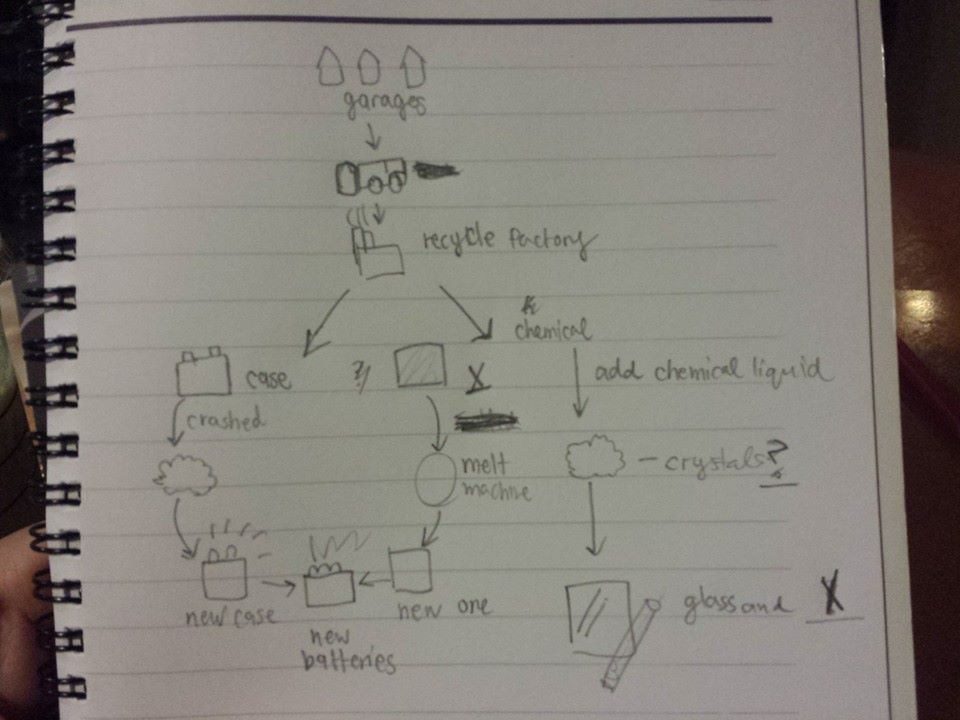 garages
recycle factory
chemical
case
?
X
add chemical liquid
crashed
melt
machine
- crystals?
new case
new one
new
batteries
glass and X